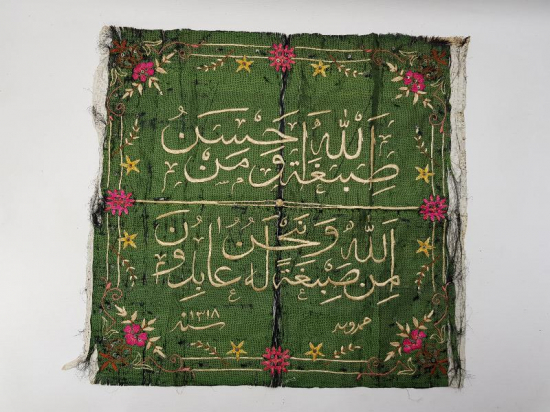 صِبغَةَ اللهَ وَمَن اَحسَنُ
مِنَ اللهِ صِبغَةً وَنَحنُ لَه عابِدُونَ
سنه ١٣١٨